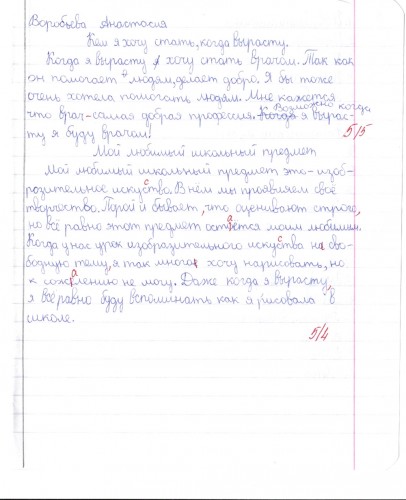 Воробьёва Анастасия
Кем я хочу стать, когда вырасту.
Когда я вырасту я хочу стать врачом. Так как
он помогает людям, делает добро. Я бы тоже
очень хотела помогать людям. Мне кажется
что врач-самая добрая профессия. Возможно когда
Когда я вырас-
ту я буду врачом!
5/5
Мой любимый школьный предмет
Мой любимый школьный предмет это-изоб-
розительное искуство. В нём мы проявляем своё
творчество. Порой и бывает, что оценивают строго,
но всё равно этот предмет остаётся моим любимым.
Когда у нас урок изобразительного искуства на сво-
бодную тему, я так много хочу нарисовать, но
к сожалению не могу. Даже когда я вырасту,
я всё равно буду вспоминать как я рисовала в
школе.
5/4